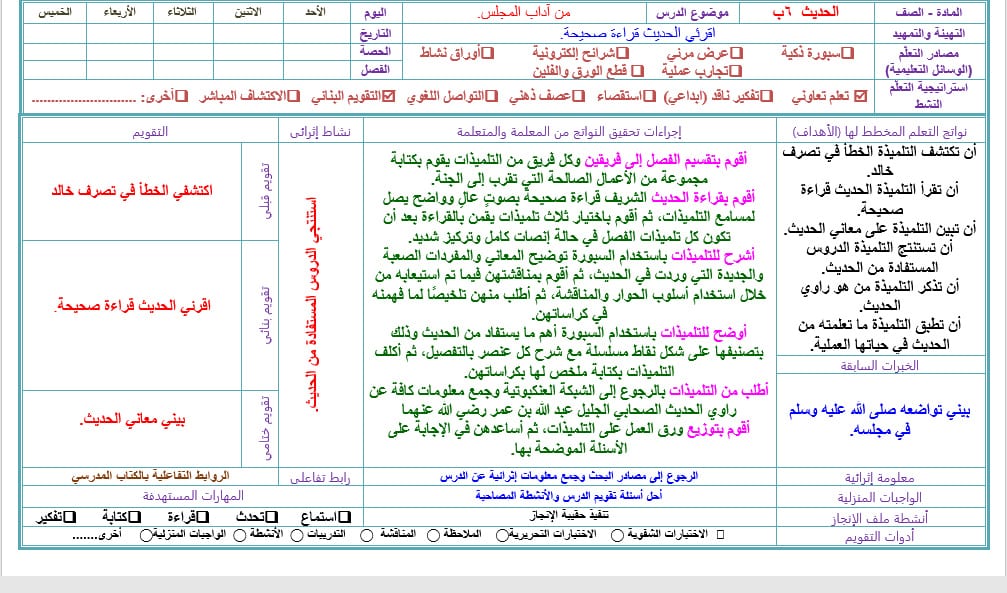 المادة - الصف
الحديث ٦ب
موضوع الدرس
من آداب المجلس.
اليوم
الأحد
الاثنين
الثلاثاء
الأربعاء
الخميس
التهيئة والتمهيد
اقرئي الحديث قراءة صحيحة.
التاريخ
مصادر التعلّم
(الوسائل التعليمية)
□سبورة ذكية □عرض مرئي □شرائح إلكترونية □أوراق نشاط
□تجارب عملية □ قطع الورق والفلين
الحصة
الفصل
استراتيجية التعلّم
النشط
☑ تعلم تعاوني □تفكير ناقد (ابداعي) □استقصاء □عصف ذهني □التواصل اللغوي ☑التقويم البنائي □الاكتشاف المباشر □أخرى: ...........................
نواتج التعلم المخطط لها (الأهداف)
إجراءات تحقيق النواتج من المعلمة والمتعلمة
نشاط إثرائى
التقويم
أن تكتشف التلميذة الخطأ في تصرف
خالد.
أن تقرأ التلميذة الحديث قراءة
صحيحة.
أن تبين التلميذة على معاني الحديث.
أن تستنتج التلميذة الدروس
المستفادة من الحديث.
أن تذكر التلميذة من هو راوي
الحديث.
أن تطبق التلميذة ما تعلمته من
الحديث في حياتها العملية.
الخبرات السابقة
بيني تواضعه صلى الله عليه وسلم
في مجلسه.
أقوم بتقسيم الفصل إلى فريقين وكل فريق من التلميذات يقوم بكتابة
مجموعة من الأعمال الصالحة التي تقرب إلى الجنة.
أقوم بقراءة الحديث الشريف قراءة صحيحة بصوتٍ عالٍ وواضح يصل
لمسامع التلميذات، ثم أقوم باختيار ثلاث تلميذات يقمن بالقراءة بعد أن
تكون كل تلميذات الفصل في حالة إنصات كامل وتركيز شديد.
أشرح للتلميذات باستخدام السبورة توضيح المعاني والمفردات الصعبة
والجديدة التي وردت في الحديث، ثم أقوم بمناقشتهن فيما تم استيعابه من
خلال استخدام أسلوب الحوار والمناقشة، ثم أطلب منهن تلخيصًا لما فهمنه
في كراساتهن.
أوضح للتلميذات باستخدام السبورة أهم ما يستفاد من الحديث وذلك
بتصنيفها على شكل نقاط مسلسلة مع شرح كل عنصر بالتفصيل، ثم أكلف
التلميذات بكتابة ملخص لها بكراساتهن.
أطلب من التلميذات بالرجوع إلى الشبكة العنكبوتية وجمع معلومات كافة عن
راوي الحديث الصحابي الجليل عبد الله بن عمر رضي الله عنهما
أقوم بتوزيع ورق العمل على التلميذات، ثم أساعدهن في الإجابة على
الأسئلة الموضحة بها.
استنتجي الدروس المستفادة من الحديث.
تقويم قبلي
اكتشفي الخطأ في تصرف خالد
تقويم بنائي
اقرئي الحديث قراءة صحيحة.
تقويم ختامي
بيني معاني الحديث.
معلومة إثرائية
الرجوع إلى مصادر البحث وجمع معلومات إثرائية عن الدرس
رابط تفاعلى
الروابط التفاعلية بالكتاب المدرسي
الواجبات المنزلية
أحل أسئلة تقويم الدرس والأنشطة المصاحبة
المهارات المستهدفة
أنشطة ملف الإنجاز
تنفيذ حقيبة الإنجاز
□استماع □تحدث □قراءة □كتابة □تفكير
أدوات التقويم
□ الاختبارات الشفوية ○ الاختبارات التحريرية○ الملاحظة ○ المناقشة ○ التدريبات ○ الأنشطة ○ الواجبات المنزلية○ أخرى.......